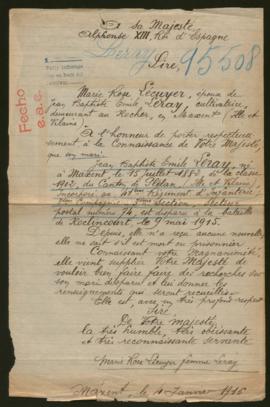 à sa Majesté
Alphonse XIII, Roi d'Espagne
Leray
95508
Sire,
Fecho
e.a.c.
Marie Rose Lecuyer, épouse de
Jean Baptiste Emile Leray, cultivatrice,
demeurant au Rocher, en Maxent (Ille et
Vilaine)
A l'honneur de porter respectueu
sement à la Connaissance de Votre Majesté,
que son mari
Jean Baptiste Emile Leray, né
à Maxent le 15 juillet 1882, de la classe
1902, du Canton de Plélan (Ille et Vilaine)
Incorporé au Régiment d'Infanterie,
Compagnie, Section, Secteur
postal numéro 74, est disparu à la bataille
de Roclincourt le 9 mai 1915.
Depuis, elle n'a reçu aucune nouvelle,
elle ne sait s'il est mort ou prisonnier
Connaissant votre Magnanimité,
elle vient supplier Votre Majesté de
vouloir bien faire faire des recherches sur
son mari disparu et lui donner les
renseignements qui seront recueillis.
Elle est, avec un très profond respect
Sire
De Votre Majesté,
la très humble, très obéissante
et très reconnaissante servante
Marie Rose Lecuyer femme Leray
Maxent, le Janvier 1916